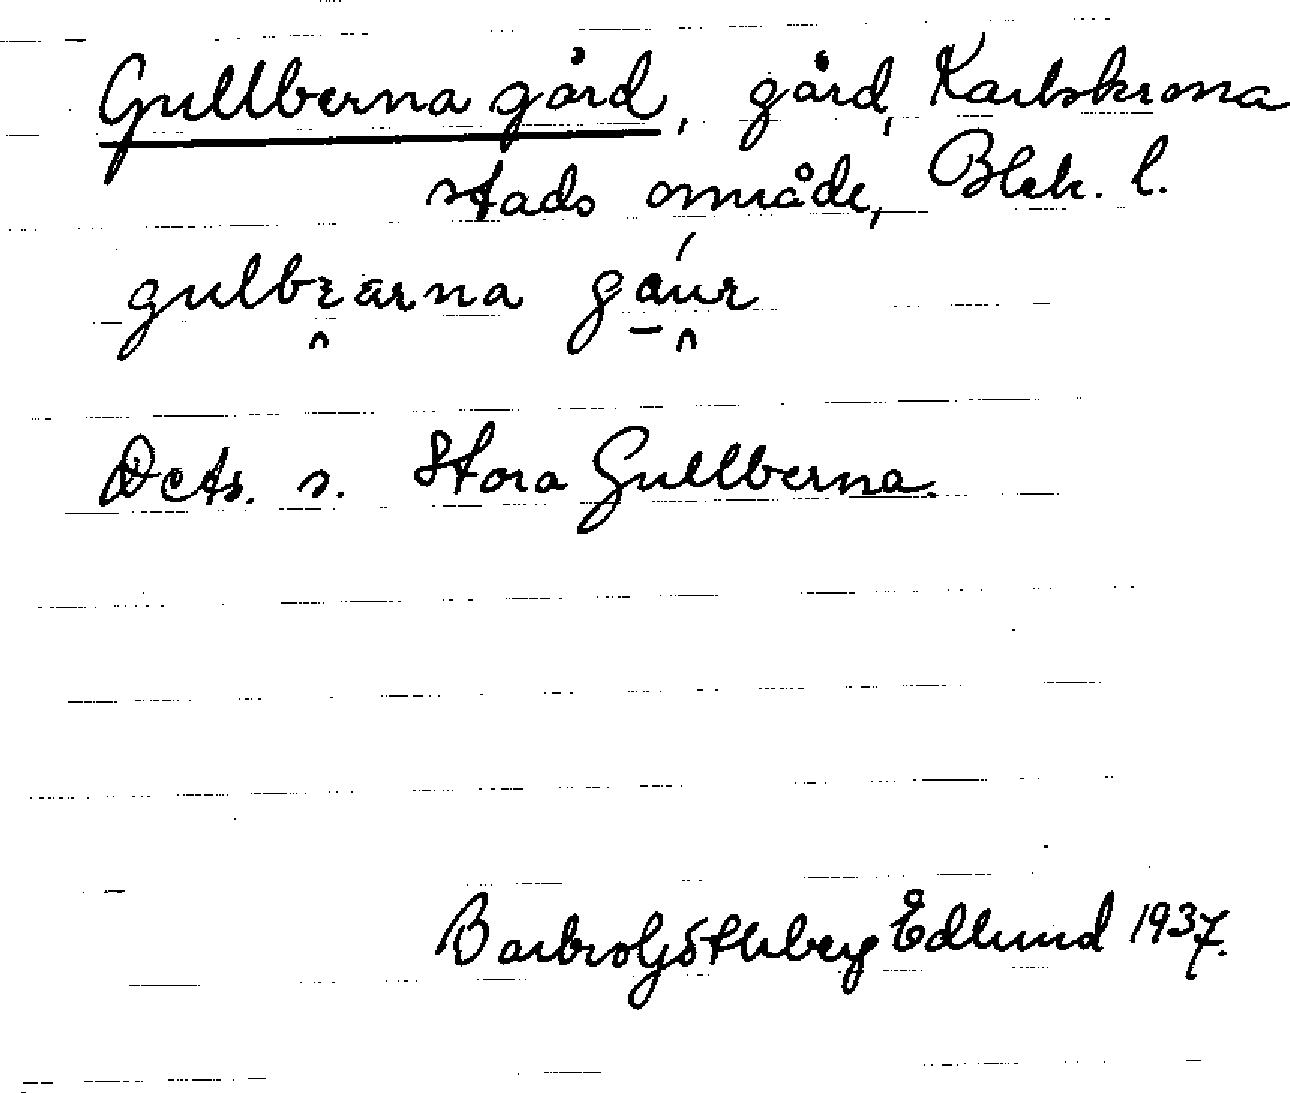 Gullberna gård, gård, Karlskrona
stads område, Blek. l.
gulbɛ̯ærna gɑu̯r
Dets. s. Stora Gullberna.
Barbro Göthberg Edlund 1937.